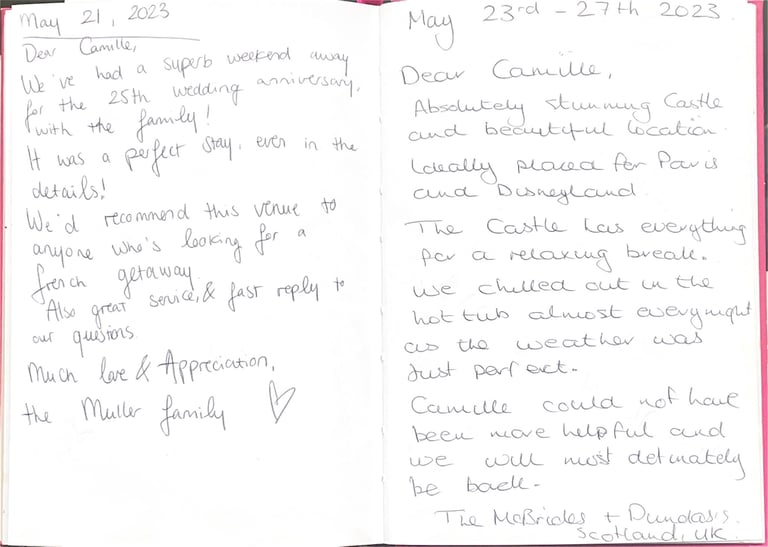 May 21, 2023
Dear Camille,
We've had a superb weekend away
for the 25th wedding anniversary,
with the family!
It was a perfect stay, even in the
details!
We'd recommend this venue to
anyone who's looking for a
french getaway.
Also great service, & fast reply to
our questions.
Much love & Appreciation,
the Muller family ♡
May 23rd - 27th 2023.
Dear Camille,
Absolutely stunning Castle
and beautiful location.
Ideally placed for Paris
and Disneyland.
The Castle has everything
for a relaxing break.
We chilled out in the
hot tub almost every night
as the weather was
Just perfect.
Camille could not have
been more helpful and
we will most detinately
be back.
The McBrides + Dundas's.
Scotland, UK.